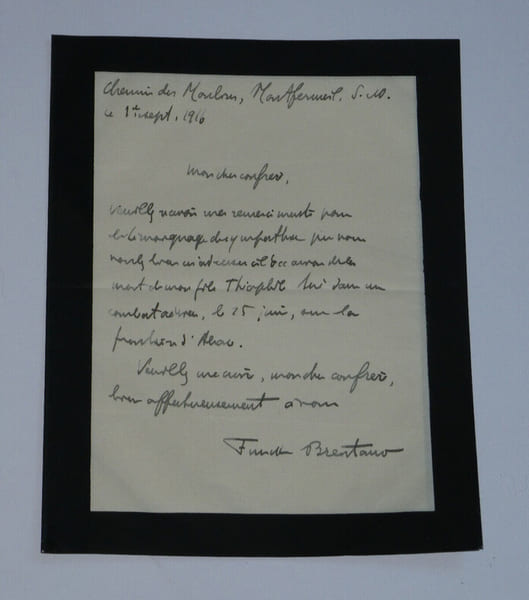 Chemin des Moulins, Montfermeil. S.-O.
le 1er sept. 1916
Mon cher confrère,
Veuillez recevoir mes remerciements pour
le témoignage de sympathie que vous
voulez bien m'adresser à l'occasion de la
mort de mon fils Théophile tué dans un
combat aérien, le 25 juin, sur la
frontière d'Alsace.
Veuillez me croire, mon cher confrère,
bien affectueusement à vous
Funck Brentano